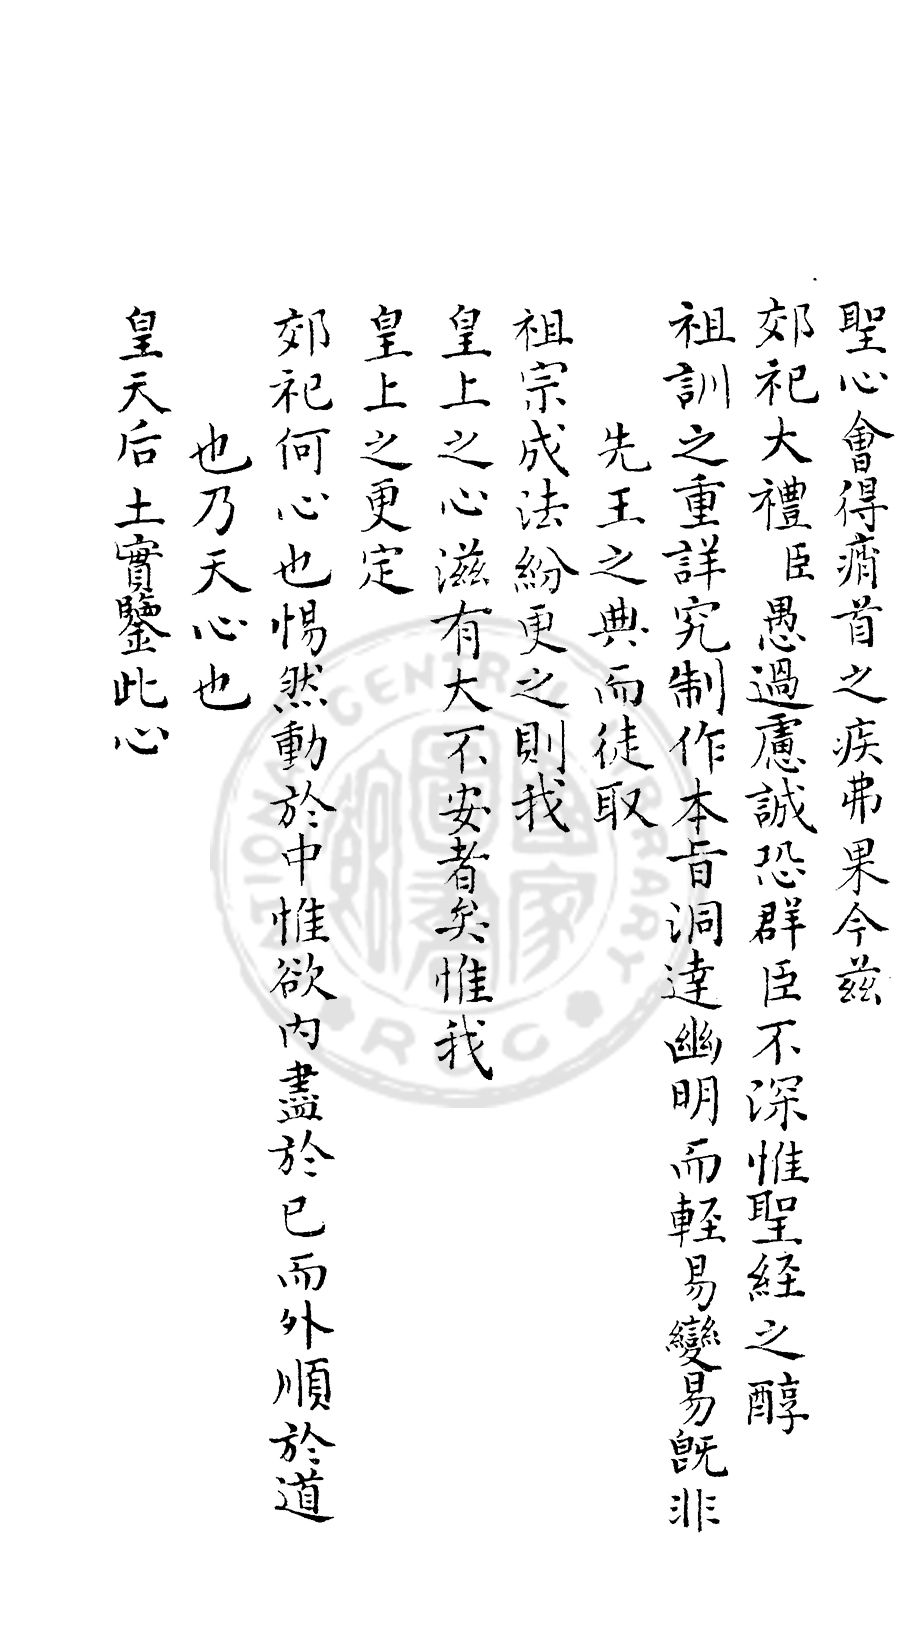 聖心會得痟首之疾弗果今茲
郊祀大禮臣愚過慮誠恐群臣不深惟聖経之醇
祖訓之重詳究制作本旨洞達幽明而輊易變易旣非
先王之典而徒取
祖宗成法紛更之則我
皇上之心滋有大不安者矣惟我
皇上之更定
郊祀何心也惕然動於中惟欲內盡於已而外順於道
也乃天心也
皇天后土實鑒此心
NATIONAL CENTRAL LIBRARY
R.O.C
國家圖書館